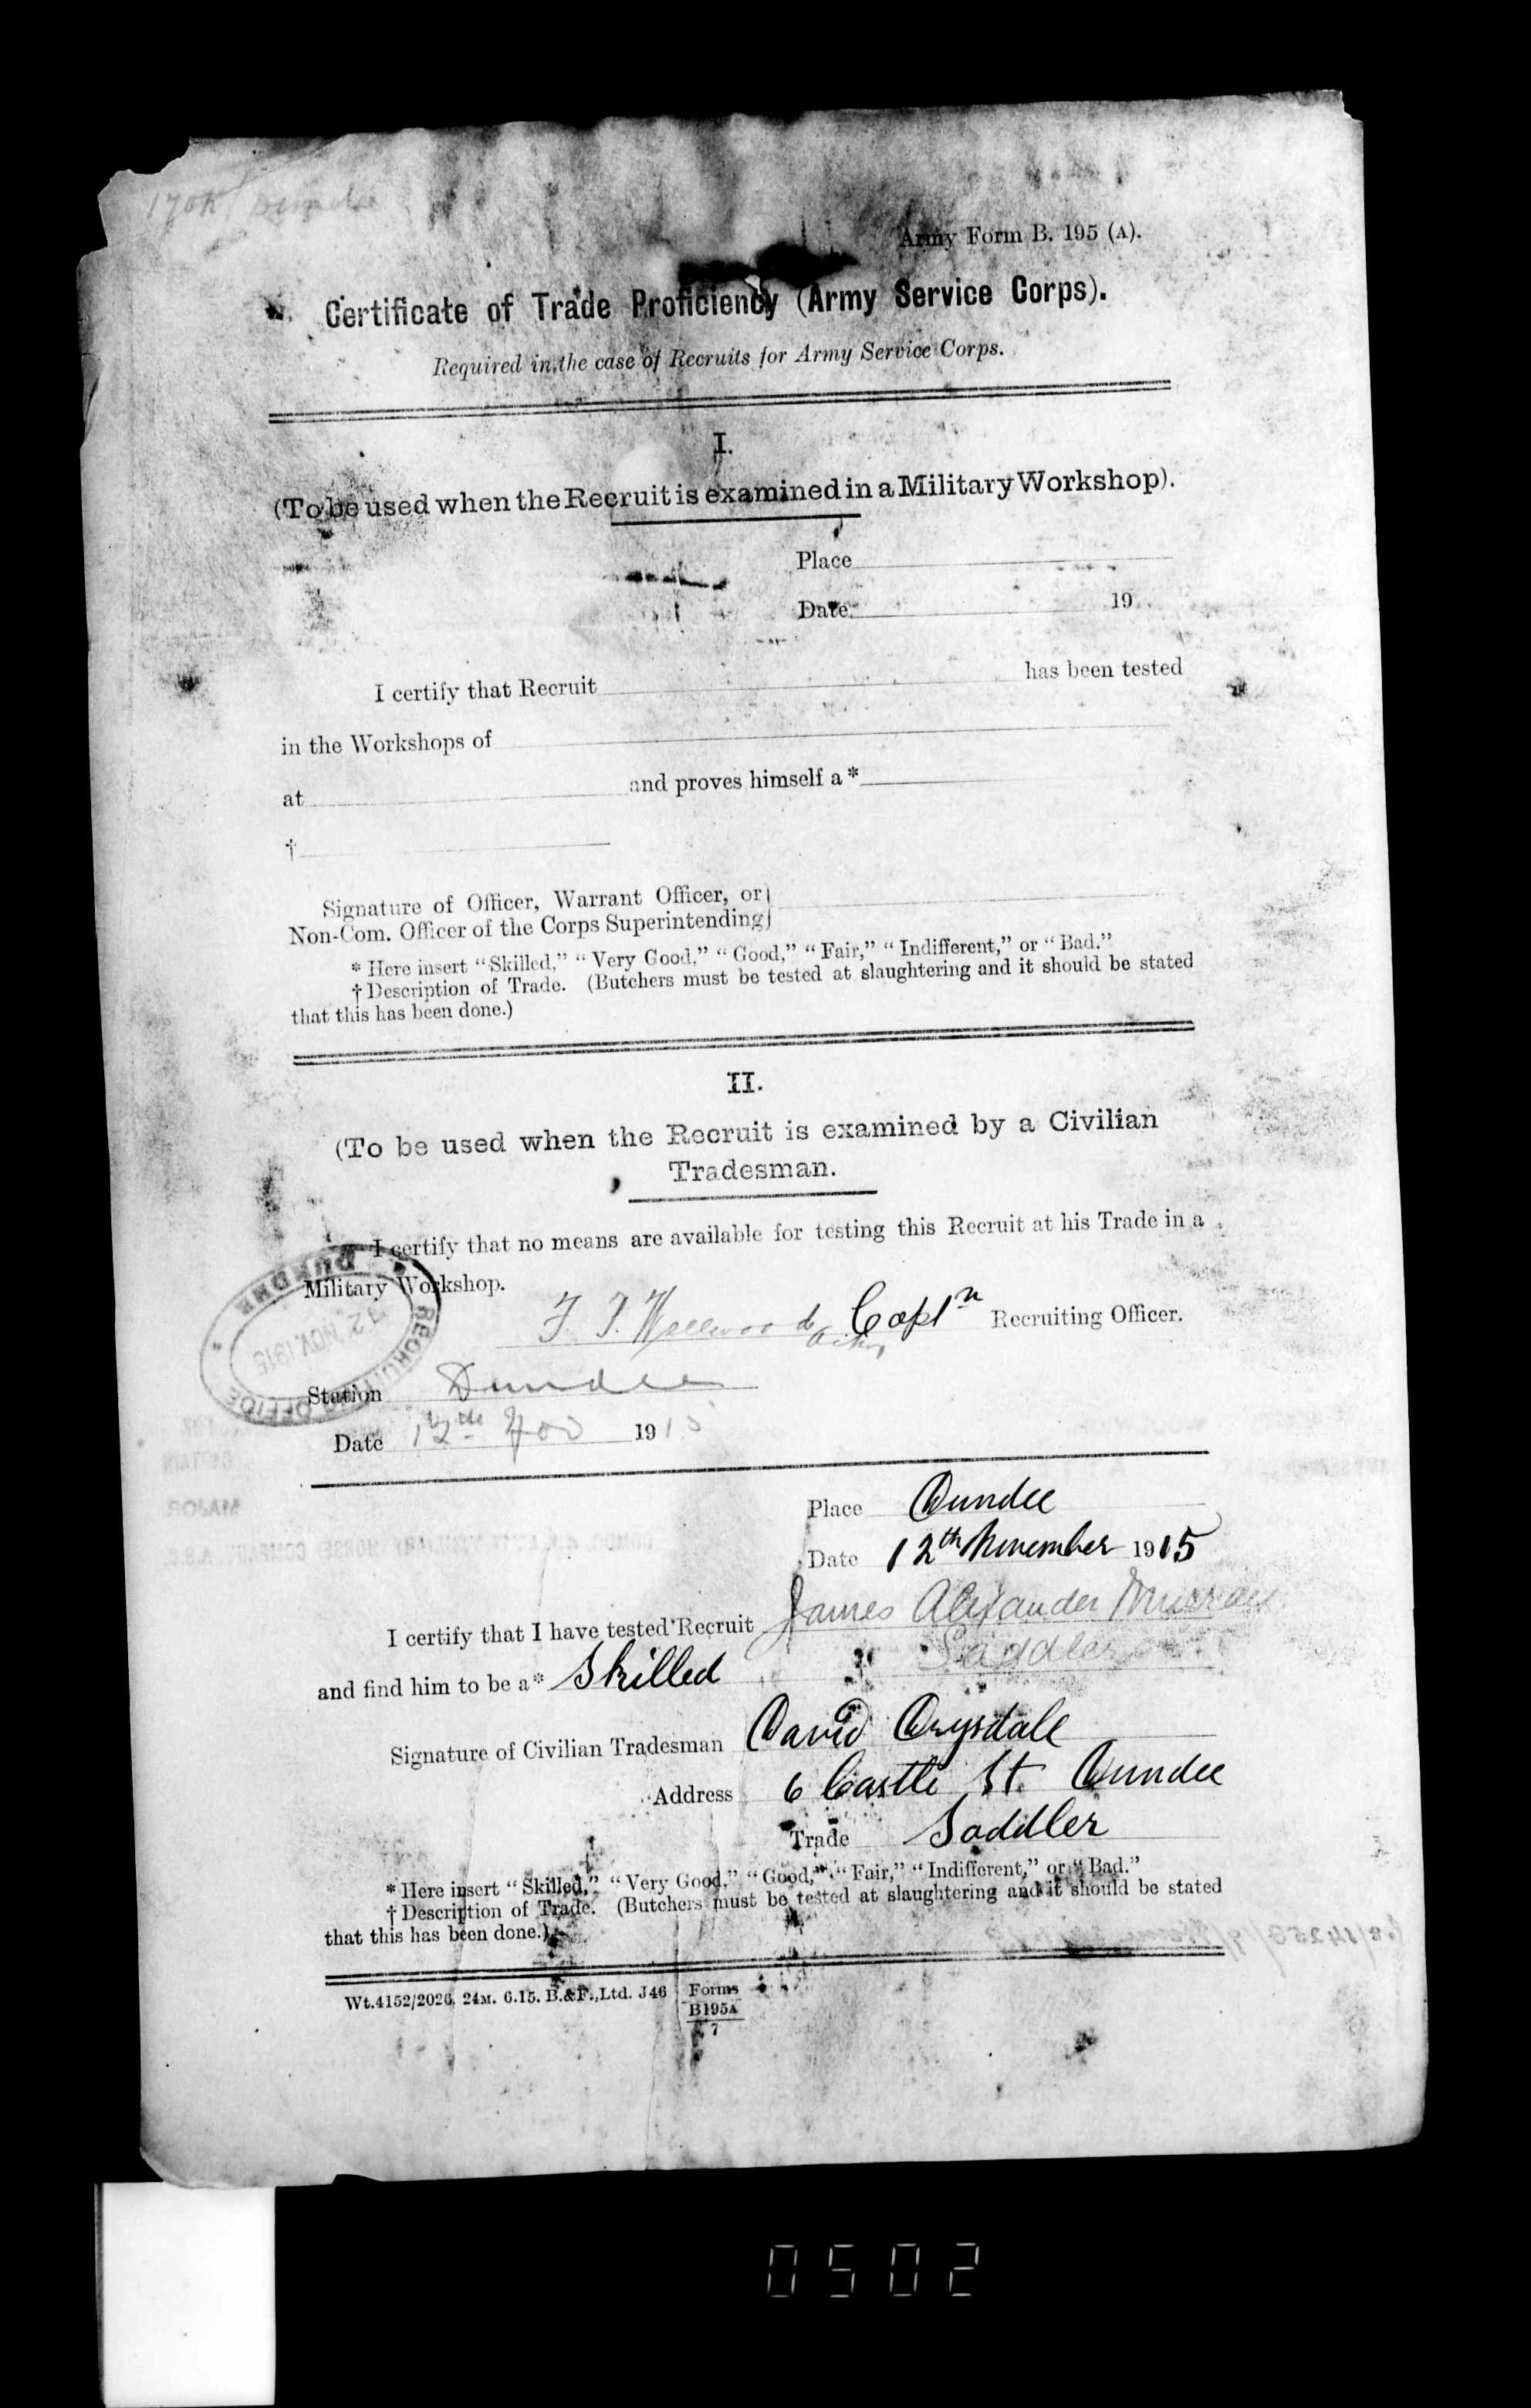 Dundee
Army Form B. 195 (A).
Certificate of Trade Proficiency (Army Service Corps).
Required in the case of Recruits for Army Service Corps.
I.
(To be used when the Recruit is examined in a Military Workshop).
Place
Date 19
I certify that Recruit has been tested
in the Workshops of
at and proves himself a *
†
Signature of Officer, Warrant Officer, or
Non-Com. Officer of the Corps Superintending
* Here insert “Skilled,” “Very Good,” “Good,” “Fair,” “Indifferent,” or “Bad.”
† Description of Trade. (Butchers must be tested at slaughtering and it should be stated
that this has been done.)
II.
(To be used when the Recruit is examined by a Civilian
Tradesman.
I certify that no means are available for testing this Recruit at his Trade in a
Military Workshop.
Captn Recruiting Officer.
DUNDEE
12 NOV. 1915
RECRUITING OFFICE
Station Dundee
Date 12th Nov 1915
Place Dundee
Date 12th November 1915
I certify that I have tested Recruit James Alexander Murray
and find him to be a * Skilled Saddler
Signature of Civilian Tradesman David Drysdale
Address 6 Castle St. Dundee
Trade Saddler
* Here insert “Skilled,” “Very Good,” “Good,” “Fair,” “Indifferent,” or “Bad.”
† Description of Trade. (Butchers must be tested at slaughtering and it should be stated
that this has been done.)
Wt.4152/2026. 24M. 6.15. B.&F.,Ltd. J46 Forms
B195A
7
0502